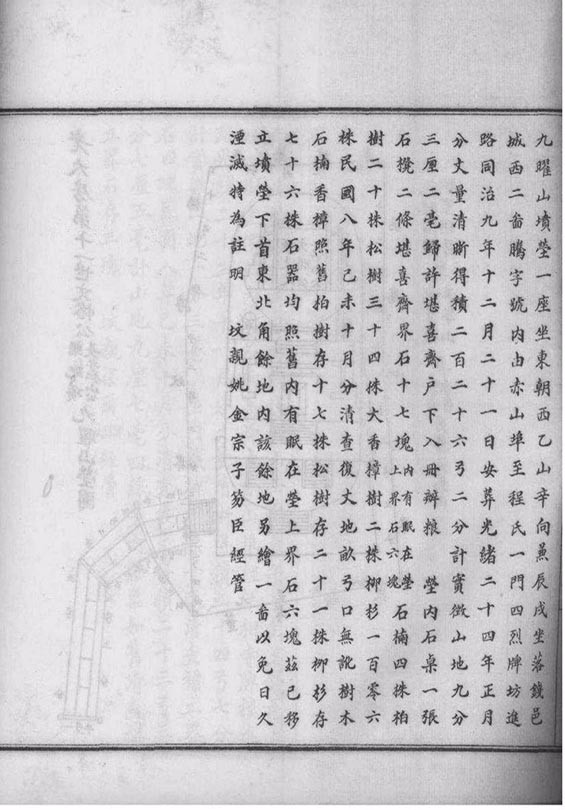 九曜山墳塋一座坐東朝西乙山辛向兼辰戌坐落錢邑
城西二啚騰字號內由赤山埠至程氏一門四烈牌坊進
路同治九年十二月二十一日安葬光緒二十四年正月
分丈量清晰得積二百二十六弓二分計實徵山地九分
三厘二毫歸許堪喜齊戶下入冊辦粮 塋內石桌一張
石櫈二條堪喜齊界石十七塊內有眠在塋上界石六塊 石楠四株柏
樹二十株松樹三十四株大香樟樹二株柳杉一百零六
株民國八年己未十月分清查復丈地畝弓口無訛樹木
石楠香樟照舊拍樹存十七株松樹存二十一株柳杉存
七十六株石器均照舊內有眠在塋上界石六塊茲已移
立墳塋下首東北角餘地內該餘地另繪一啚以免日久
湮滅特為註明 坟親姚金宗子笏臣經管